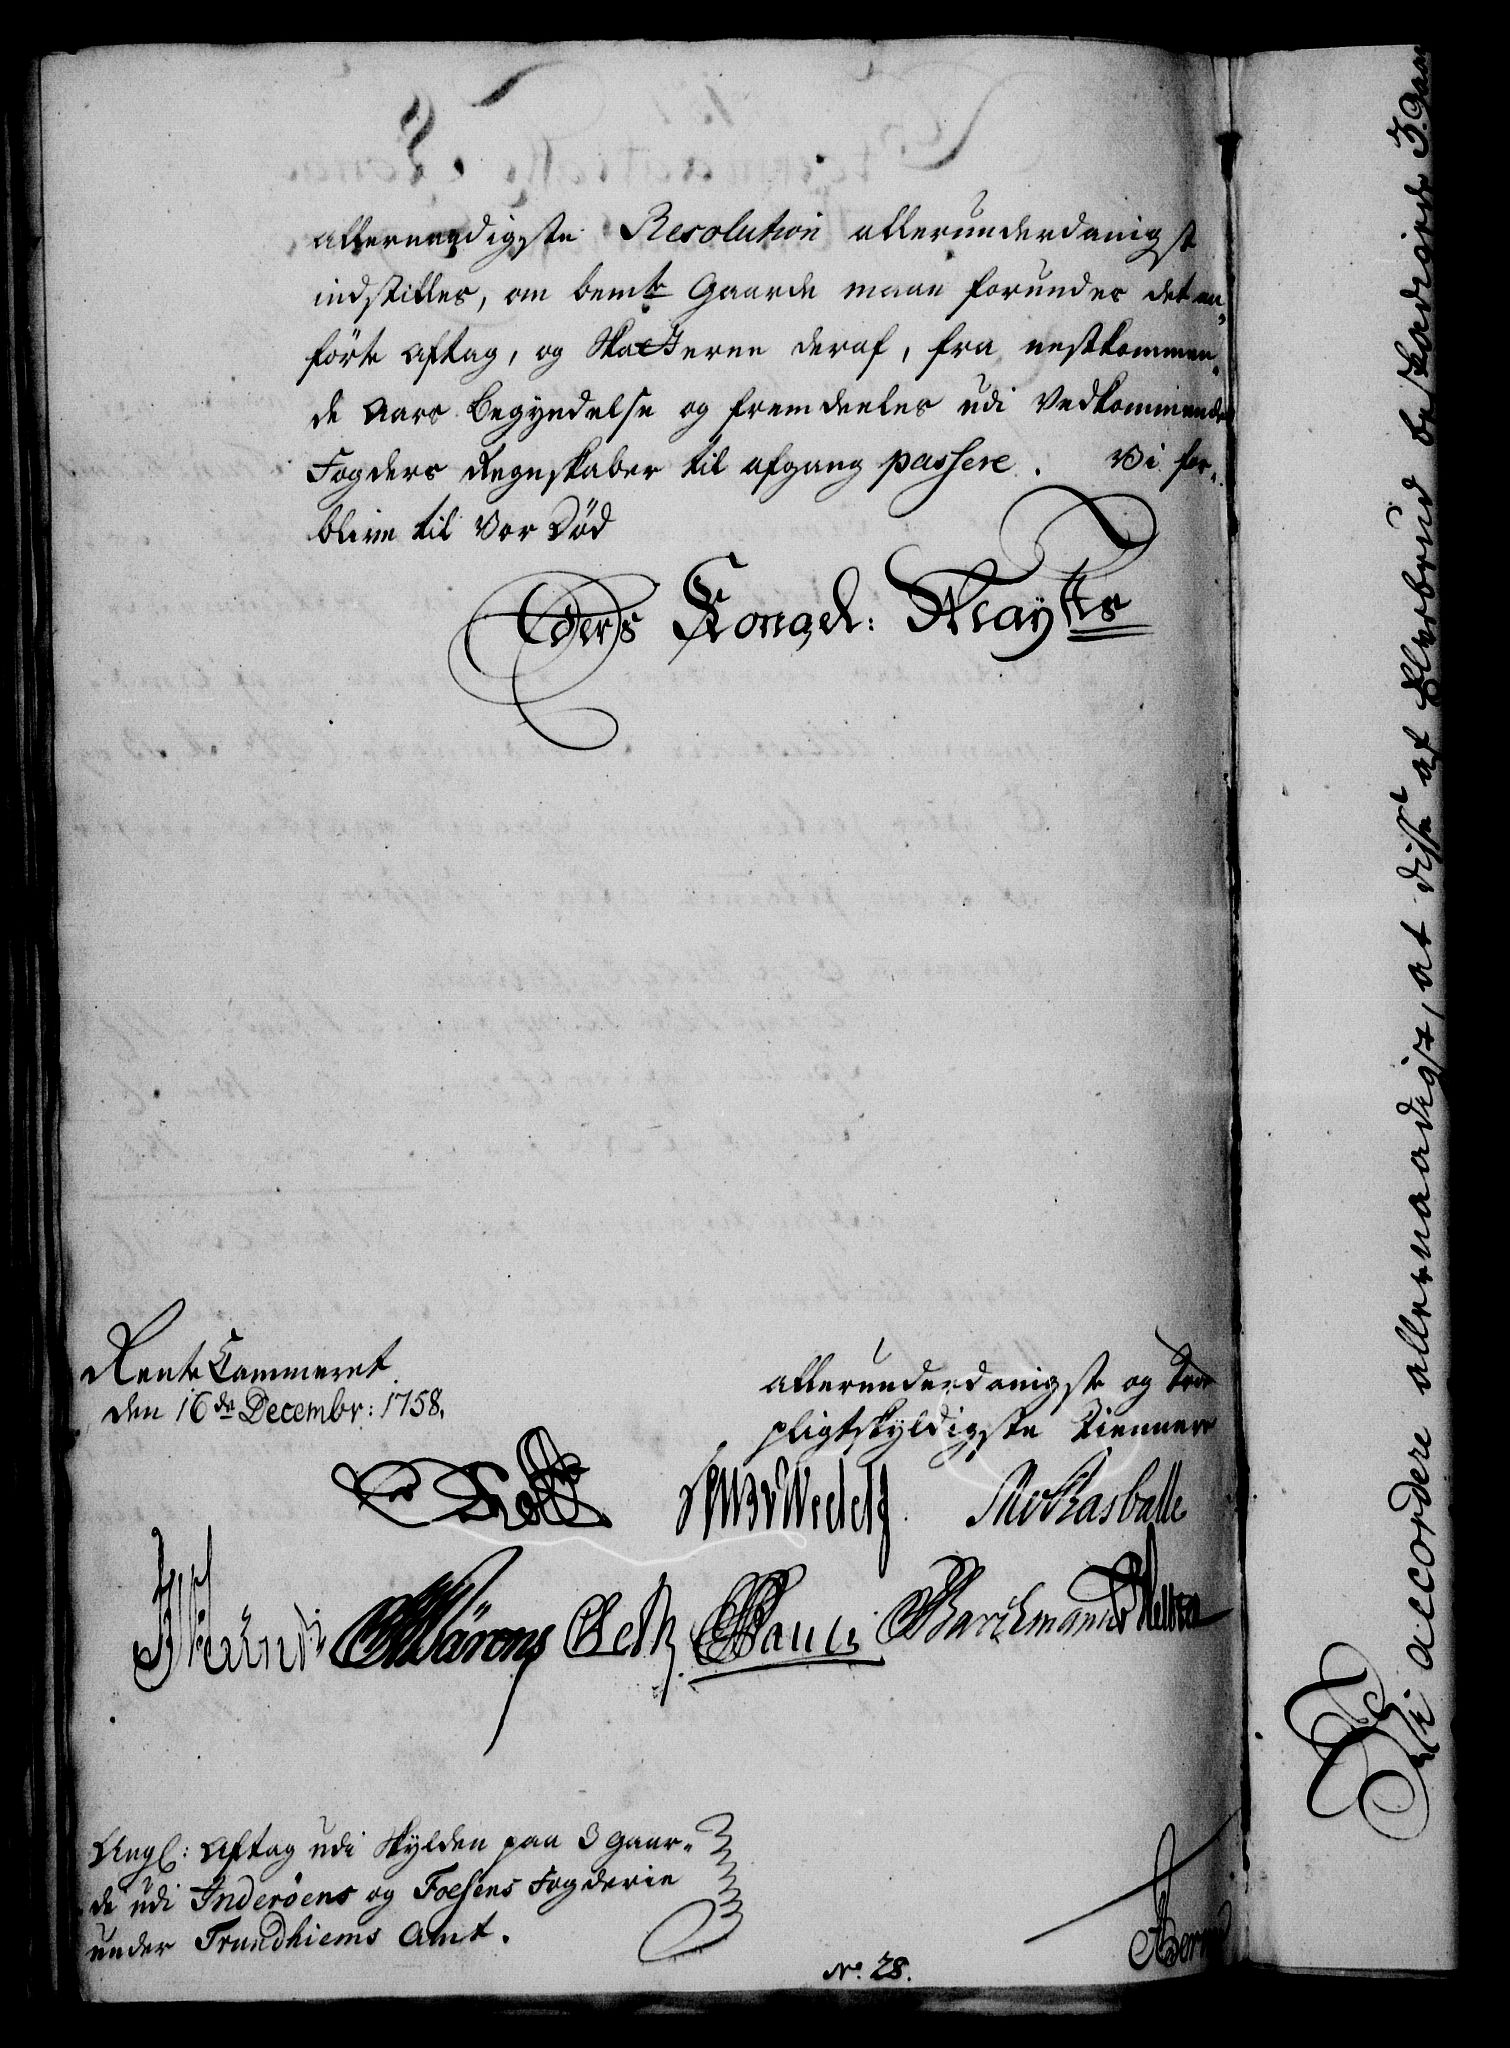 allernaadigste Resolution allerunderdanigst
indstilles, om bemte Gaarde maae forundes det an„
førte Aftag, og Skatterne deraf, fra nestkommen„
de Aars Begyndelse og fremdeeles udi Vedkommende
Fogders Regnskaber til afgang passere. Vi for„
blive til Vor Død
Eders Kongel: Maytts
Rente Cammeret
den 16de Decembr: 1758.
allerunderdanigste og troe
pligtskyldigste Tiennere
Wedell
Barchmann
Angl: Aftag udi Skylden paa 3 Gaar„
de udi Inderöens og Foesens Fogderie
under Trundhiems Amt.
No. 28.
Vi accordere allernaadigst, at disse af Elvebrud beskadigede 3 Gaar